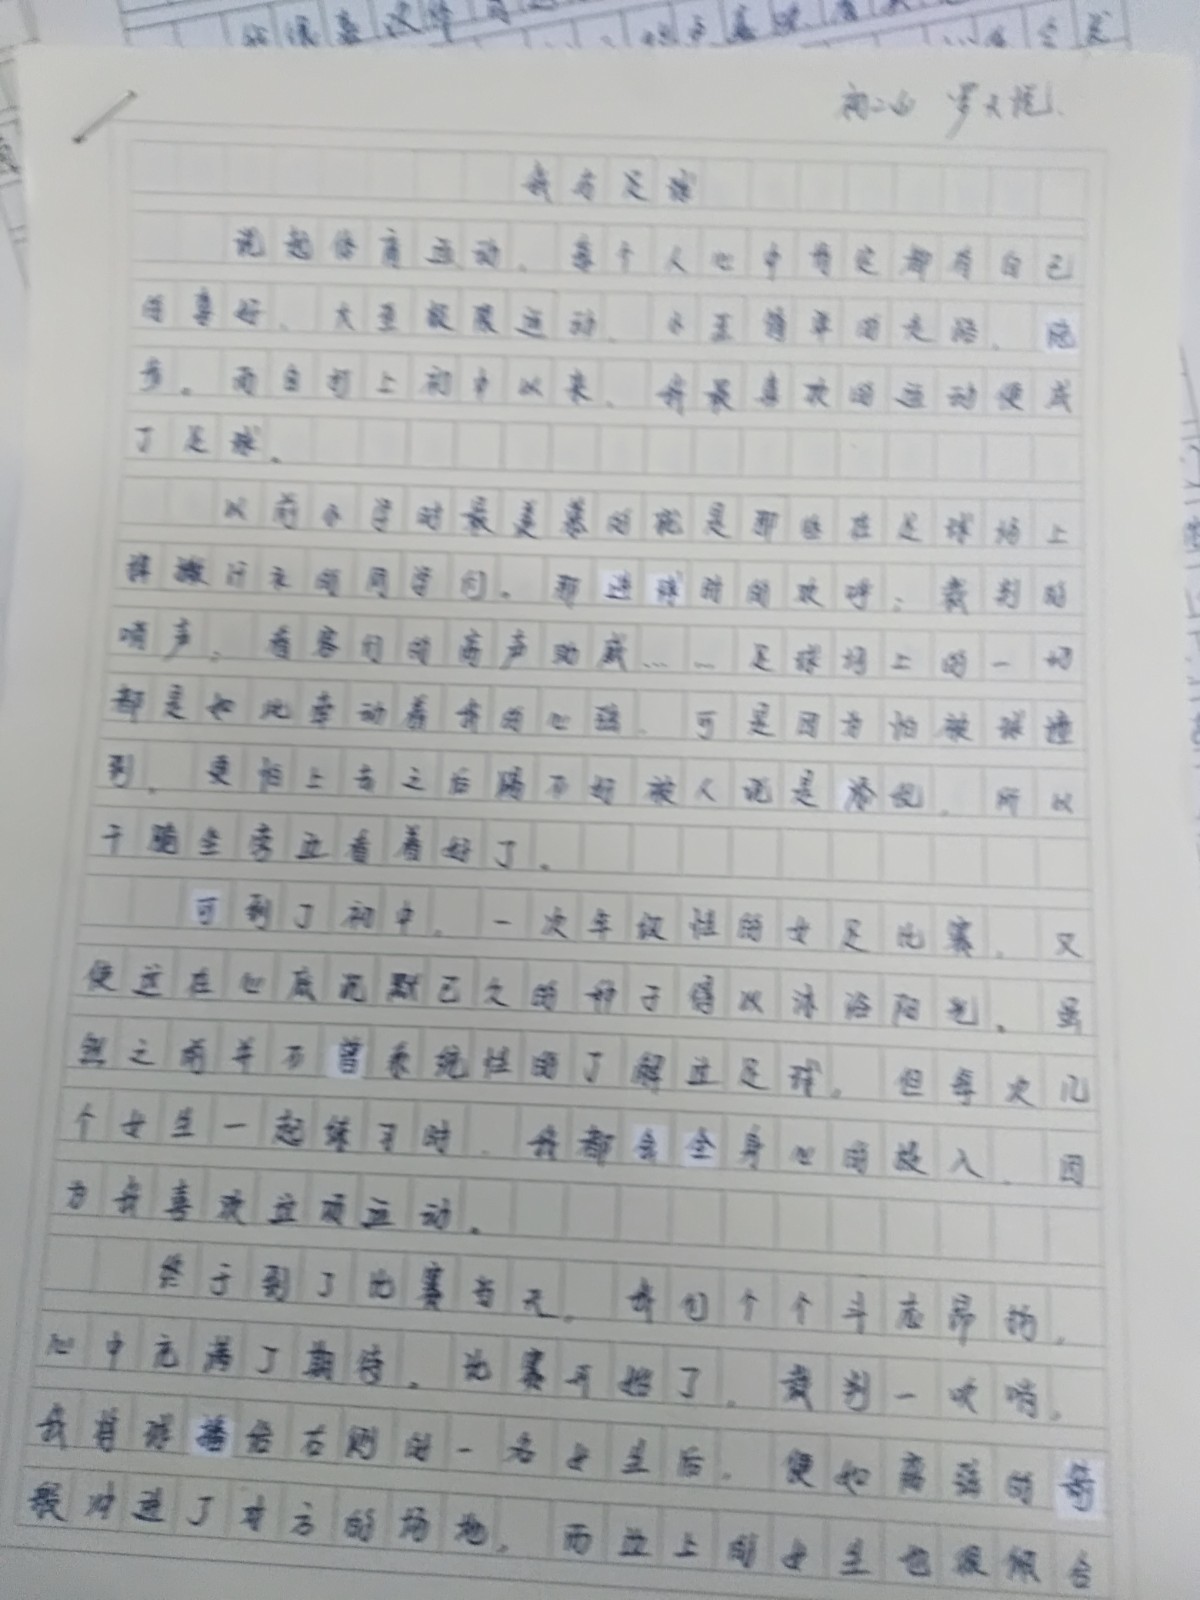 初二(6) 罗天悦
我与足球
说起体育运动，每个人心中肯定都有自己
的喜好，大至极限运动，小至简单的走路、跑
步。而自打上初中以来，我最喜欢的运动便成
了足球。
以前小学时最羡慕的就是那些在足球场上
挥撒汗水的同学们。那进球时的欢呼；裁判的
哨声；看客们的高声助威……足球场上的一切
都是如此牵动着我的心弦，可是因为怕被球撞
到，更怕上去之后踢不好被人说是，所以
干脆坐旁边看着好了。
可到了初中，一次年级性的女足比赛，又
使这在心底沉默已久的种子得以沐浴阳光。虽
然之前并不曾系统性的了解过足球，但每次几
个女生一起练习时，我都会全身心的投入，因
为我喜欢这项运动。
终于到了比赛当天，我们个个斗志昂扬，
心中充满了期待。比赛开始了，裁判一吹哨，
我将球传给右侧的一名女生后，便如离弦的箭
般冲进了对方的场地，而边上的女生也很倾合